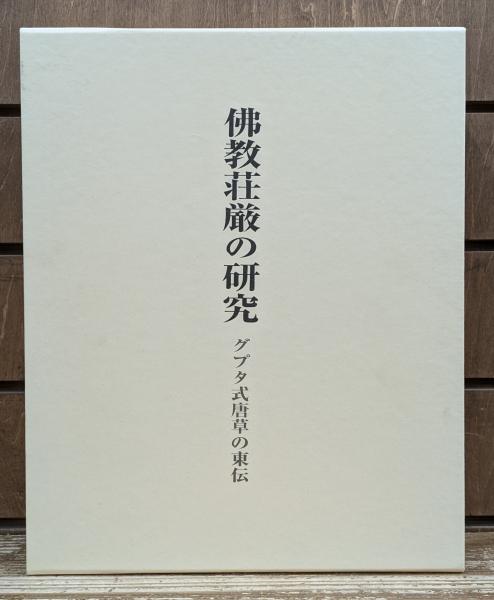 佛教荘厳の研究
グプタ式唐草の東伝